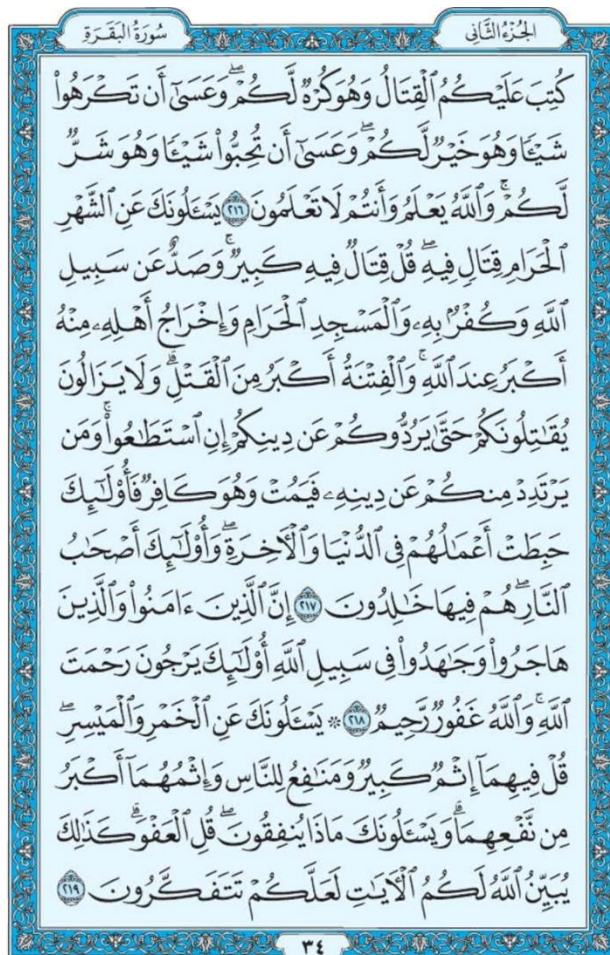 الجُزْءُ الثَّانِي
سُورَةُ البَقَرَةِ
كُتِبَ عَلَيْكُمُ ٱلْقِتَالُ وَهُوَ كُرْهٌ لَّكُمْ ۖ وَعَسَىٰٓ أَن تَكْرَهُوا۟
شَيْـًٔا وَهُوَ خَيْرٌ لَّكُمْ ۖ وَعَسَىٰٓ أَن تُحِبُّوا۟ شَيْـًٔا وَهُوَ شَرٌّ
لَّكُمْ ۗ وَٱللَّهُ يَعْلَمُ وَأَنتُمْ لَا تَعْلَمُونَ ٢١٦ يَسْـَٔلُونَكَ عَنِ ٱلشَّهْرِ
ٱلْحَرَامِ قِتَالٍ فِيهِ ۖ قُلْ قِتَالٌ فِيهِ كَبِيرٌ ۖ وَصَدٌّ عَن سَبِيلِ
ٱللَّهِ وَكُفْرٌۢ بِهِۦ وَٱلْمَسْجِدِ ٱلْحَرَامِ وَإِخْرَاجُ أَهْلِهِۦ مِنْهُ
أَكْبَرُ عِندَ ٱللَّهِ ۚ وَٱلْفِتْنَةُ أَكْبَرُ مِنَ ٱلْقَتْلِ ۗ وَلَا يَزَالُونَ
يُقَـٰتِلُونَكُمْ حَتَّىٰ يَرُدُّوكُمْ عَن دِينِكُمْ إِنِ ٱسْتَطَـٰعُوا۟ ۚ وَمَن
يَرْتَدِدْ مِنكُمْ عَن دِينِهِۦ فَيَمُتْ وَهُوَ كَافِرٌ فَأُو۟لَـٰٓئِكَ
حَبِطَتْ أَعْمَـٰلُهُمْ فِى ٱلدُّنْيَا وَٱلْـَٔاخِرَةِ ۖ وَأُو۟لَـٰٓئِكَ أَصْحَـٰبُ
ٱلنَّارِ ۖ هُمْ فِيهَا خَـٰلِدُونَ ٢١٧ إِنَّ ٱلَّذِينَ ءَامَنُوا۟ وَٱلَّذِينَ
هَاجَرُوا۟ وَجَـٰهَدُوا۟ فِى سَبِيلِ ٱللَّهِ أُو۟لَـٰٓئِكَ يَرْجُونَ رَحْمَتَ
ٱللَّهِ ۚ وَٱللَّهُ غَفُورٌ رَّحِيمٌ ٢١٨ ۞ يَسْـَٔلُونَكَ عَنِ ٱلْخَمْرِ وَٱلْمَيْسِرِ ۖ
قُلْ فِيهِمَآ إِثْمٌ كَبِيرٌ وَمَنَـٰفِعُ لِلنَّاسِ وَإِثْمُهُمَآ أَكْبَرُ
مِن نَّفْعِهِمَا ۗ وَيَسْـَٔلُونَكَ مَاذَا يُنفِقُونَ ۖ قُلِ ٱلْعَفْوَ ۗ كَذَٰلِكَ
يُبَيِّنُ ٱللَّهُ لَكُمُ ٱلْـَٔايَـٰتِ لَعَلَّكُمْ تَتَفَكَّرُونَ ٢١٩
٣٤